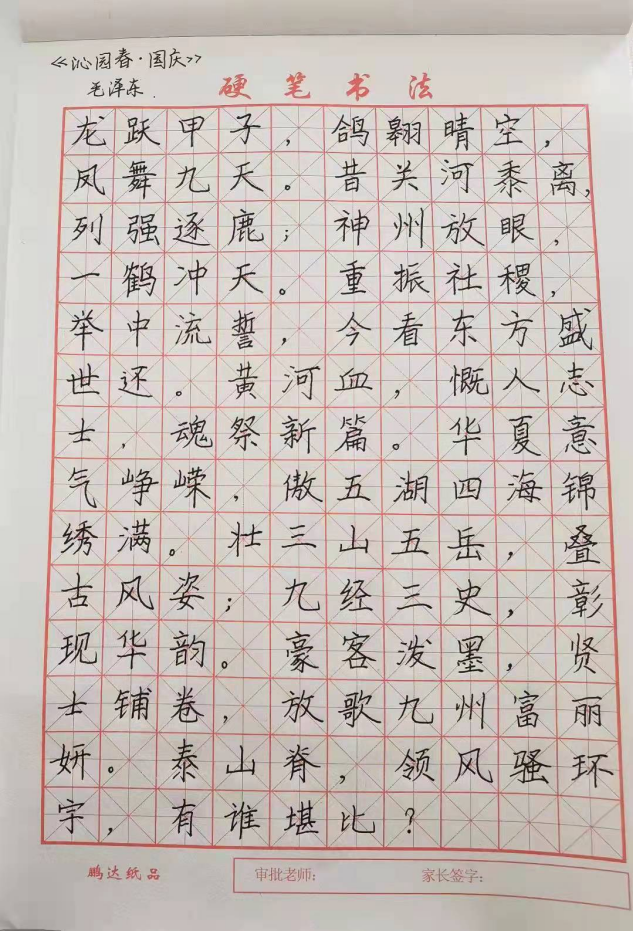 《沁园春·国庆》
毛泽东.
硬笔书法
龙跃甲子，鸽翱晴空，
凤舞九天。昔关河黍离，
列强逐鹿；神州放眼，
一鹤冲天。重振社稷，
举中流誓，今看东方盛
世还。黄河血，慨人志
士，魂祭新篇。华夏意
气峥嵘，傲五湖四海锦
绣满。壮三山五岳，叠
古风姿；九经三史，彰
现华韵。豪客泼墨，贤
士铺卷，放歌九州富丽
妍。泰山脊，领风骚环
宇，有谁堪比？
鹏达纸品
审批老师： 家长签字：